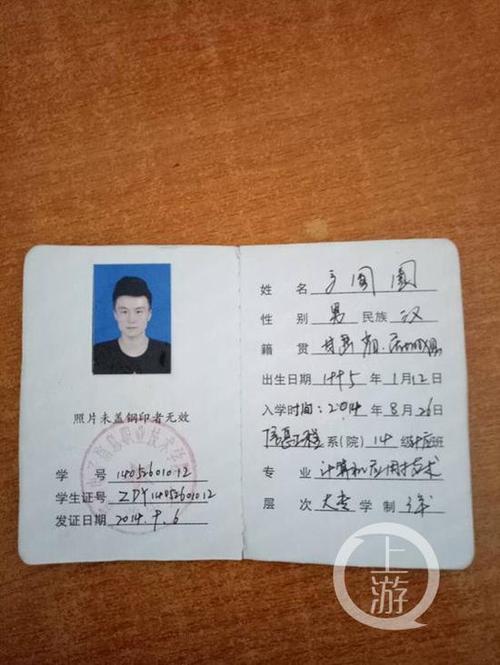 照片未盖钢印者无效
学 号 14052601012
学生证号 ZDY14052601012
发证日期 2014.9.6
姓 名
性 别 男 民族 汉
籍 贯 甘肃省
出生日期 1995 年 1月12日
入学时间:2014年8月26日
信息工程系(院)14级计应班
专 业 计算机应用技术
层 次 大专 学 制 3年
上游